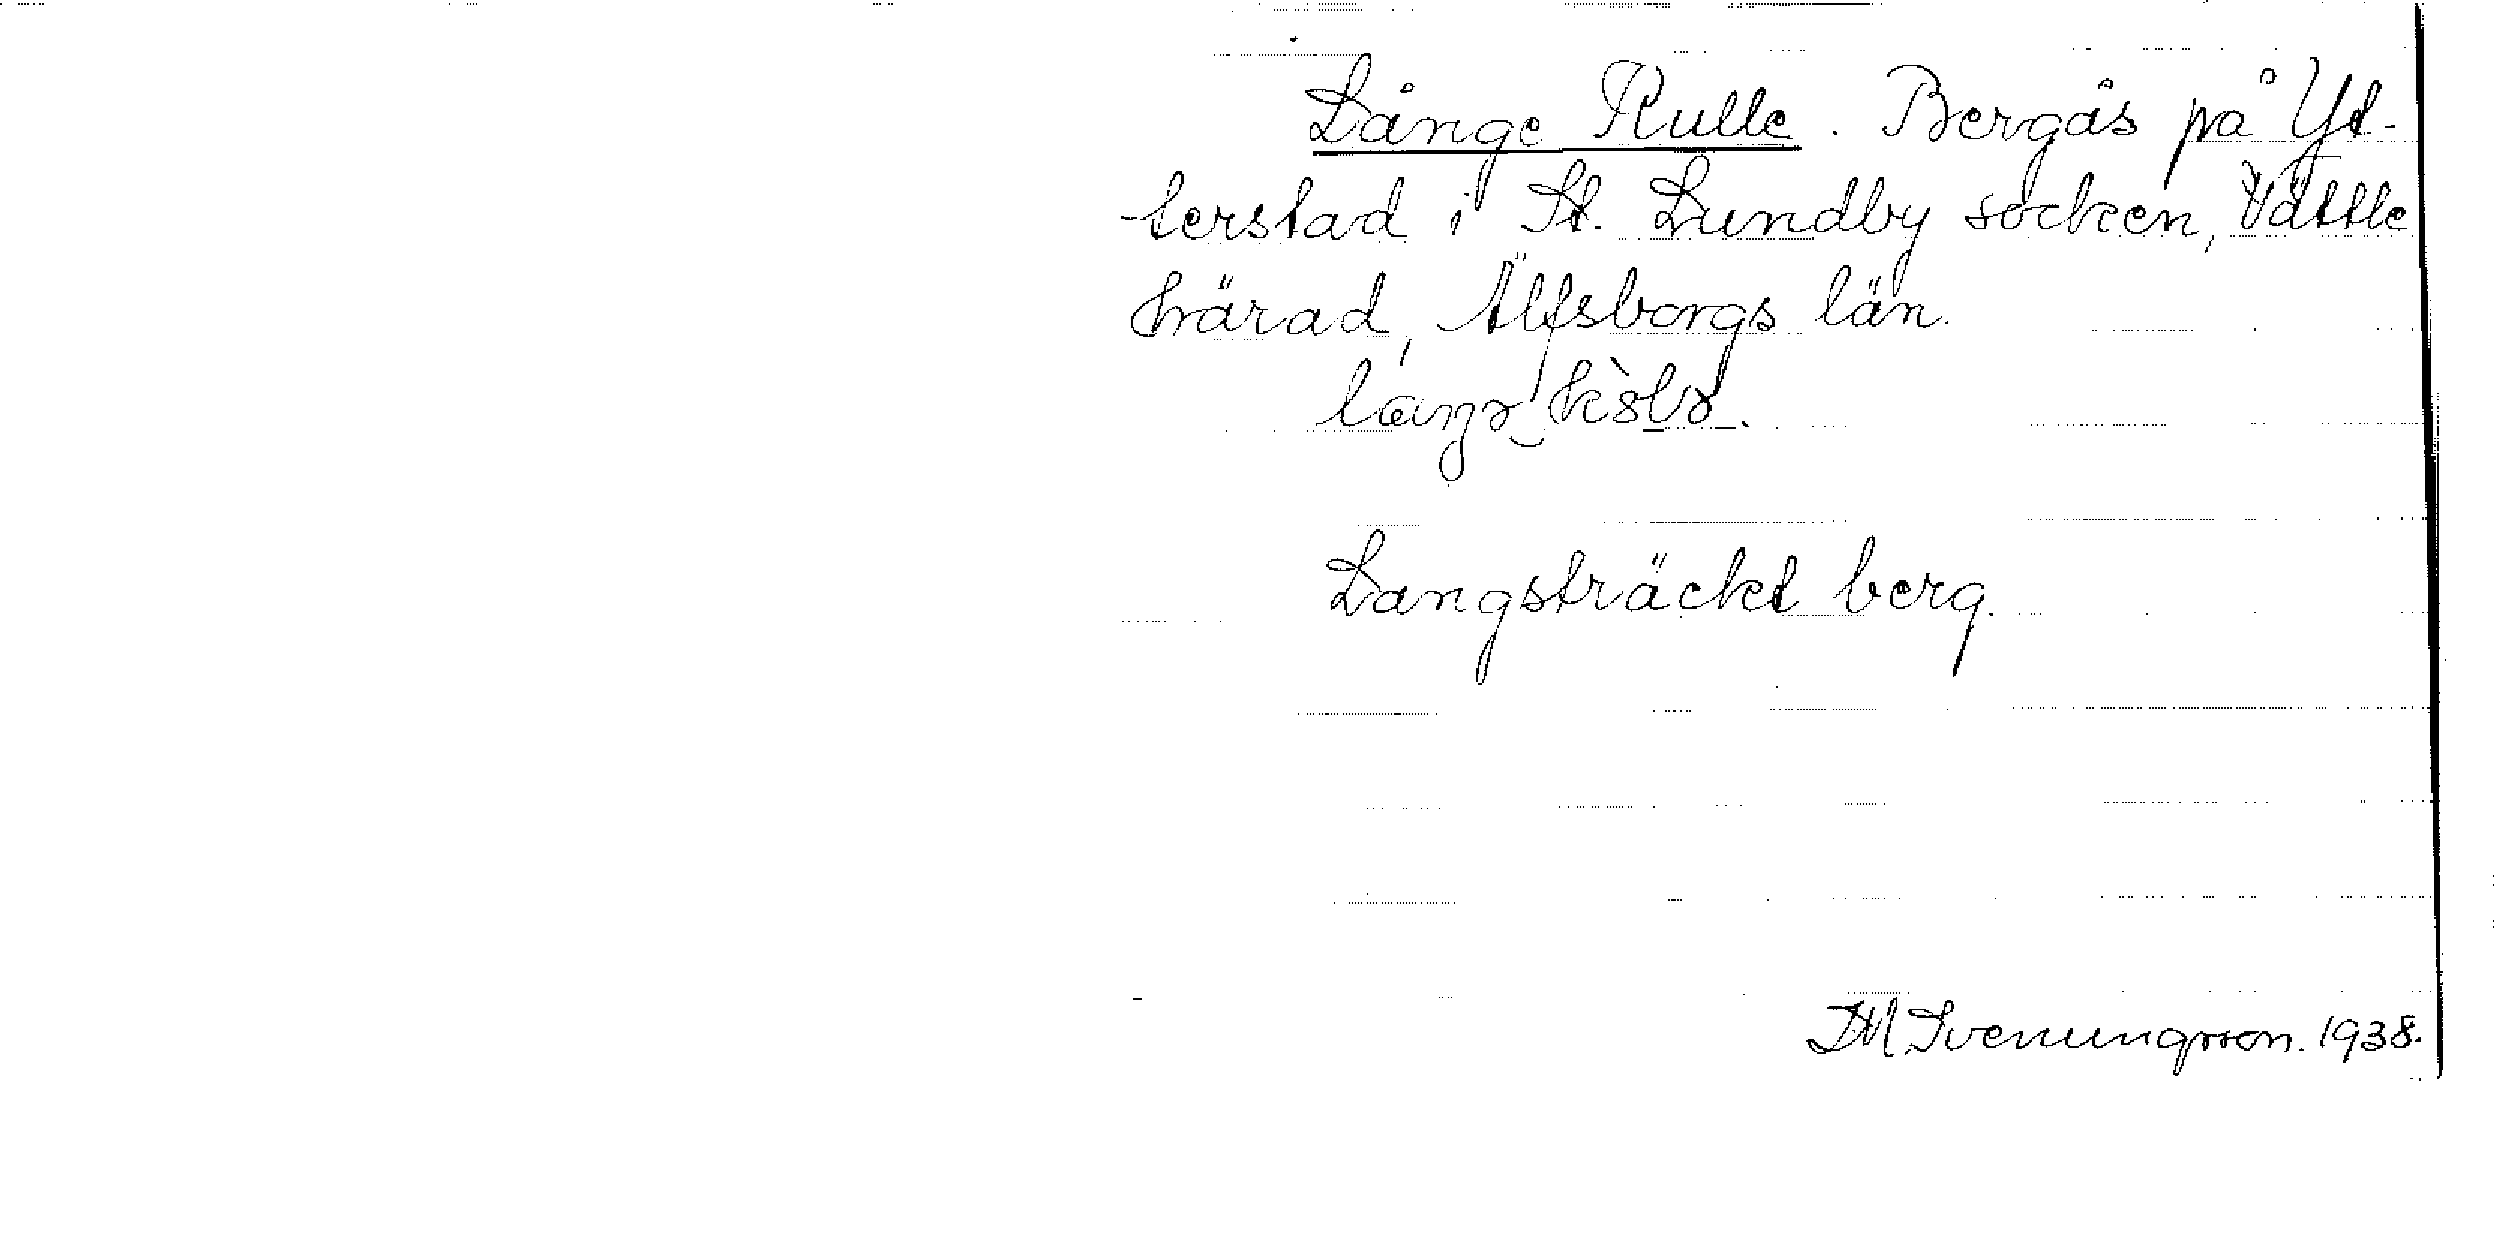 Långe Kulle. Bergås på Yt-
-terstad i St. Lundby socken, Vättle
härad, Älfsborgs län.
Langsträckt berg.
SM Svenungsson. 1938.